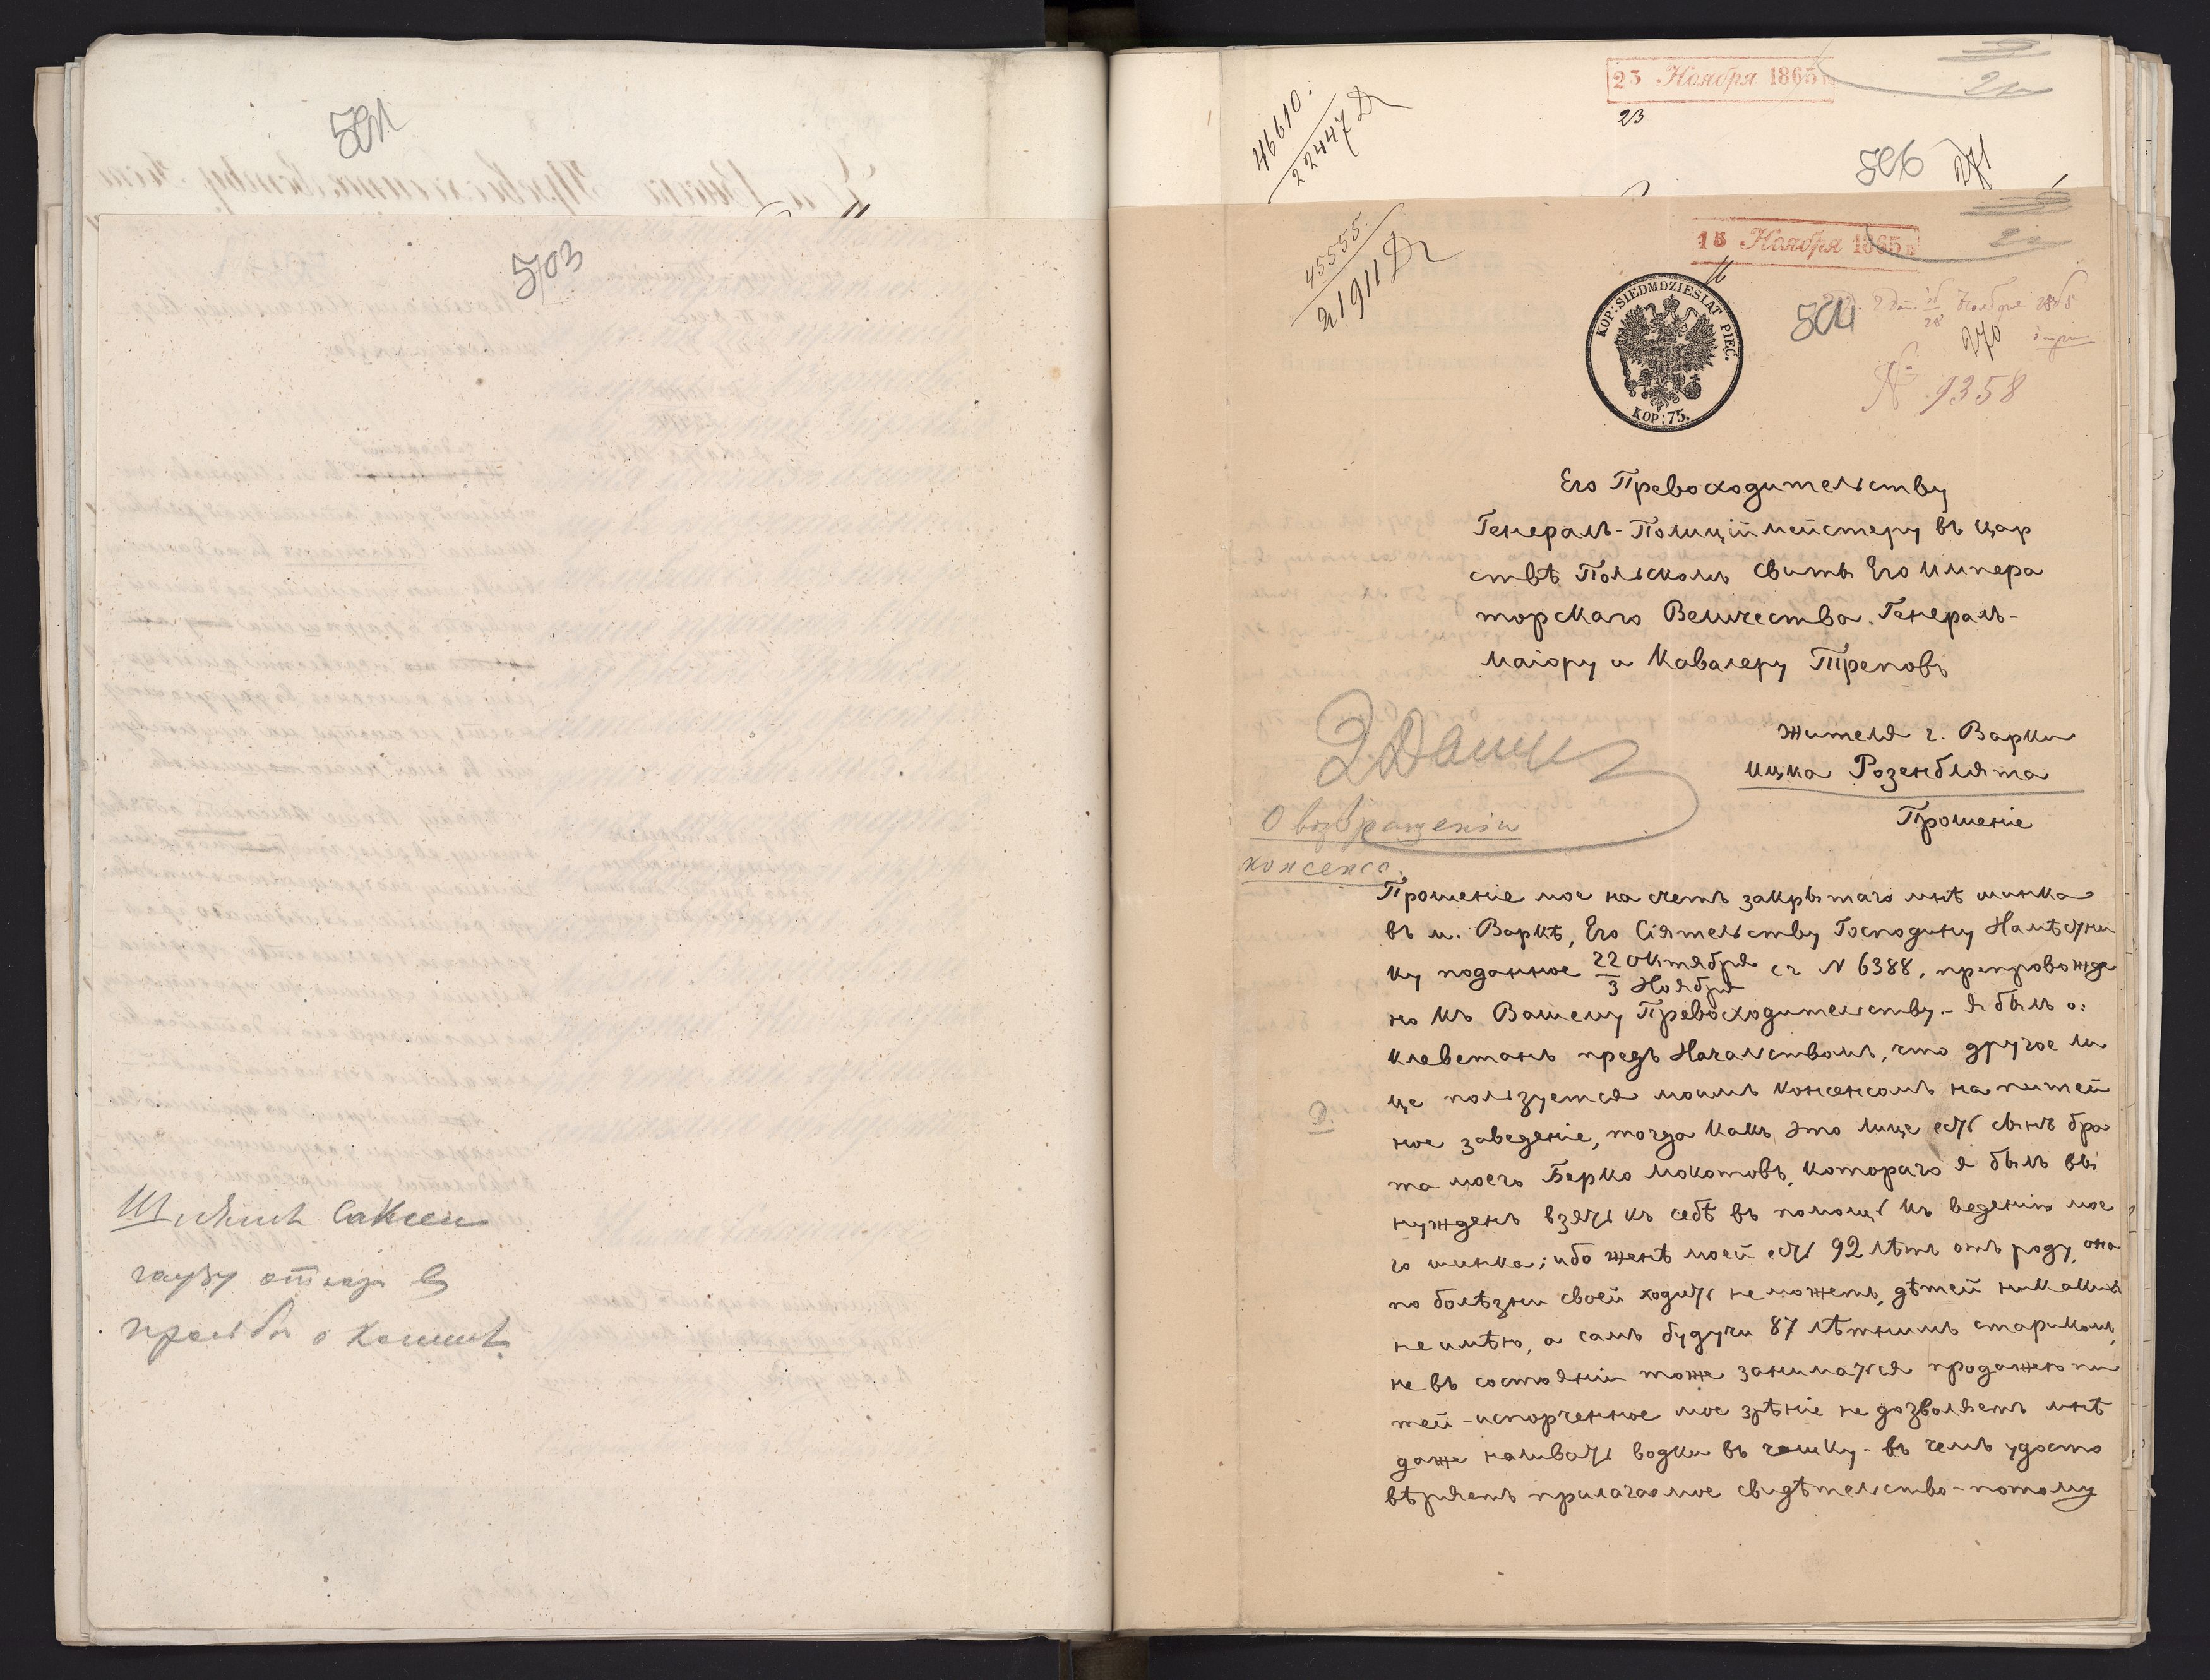 501
503
Саксен
гаузу отказ в
просьбы о
23 Ноября 1865 г.
23
46610.
22447 Д
506 271
45555.
21911 Д
15 Ноября 1865 г.
504
Ноября
270
№ 9358
KOP: SIEDMDZIESIAT PIĘC.
KOP: 75.
Его Превосходительству
Генералъ-Полиціймейстеру въ Цар
ствѣ Польскомъ Свиты Его Импера
торскаго Величества Генералъ-
Маіору и Кавалеру Треповъ
Жителя г. Варки
Ицка Розенблята
Прошеніе
О возвращеніи
консенса.
Прошеніе мое на счетъ закрытаго мнѣ шинка
въ м. Варкѣ, Его Сіятельству Господину Намѣстни
ку поданное 22 Октября/3 Ноября с г N 6388, препровожде
но къ Вашему Превосходительству - я былъ о:
клеветанъ предъ Началствомъ, что другое ли
це ползуется моимъ консенсомъ на питей
ное заведеніе, тогда какъ это лице есть сынъ бра
та моего Берко Мокотовъ, котораго я былъ вы
нужденъ взять къ себѣ въ помощь къ веденію мое
го шинка; ибо женѣ моей есть 92 лѣтъ отъ роду, она
по болѣзни своей ходить не можетъ, дѣтей никакихъ
не имѣю, а самъ будучи 87 лѣтнимъ старикомъ,
не въ состояніи тоже заниматься продажею пи
тей - испорченное мое зрѣніе не дозволяетъ мнѣ
даже наливать водки въ чашку - въ чемъ удосто
вѣряетъ прилагаемое свидѣтельство - потому